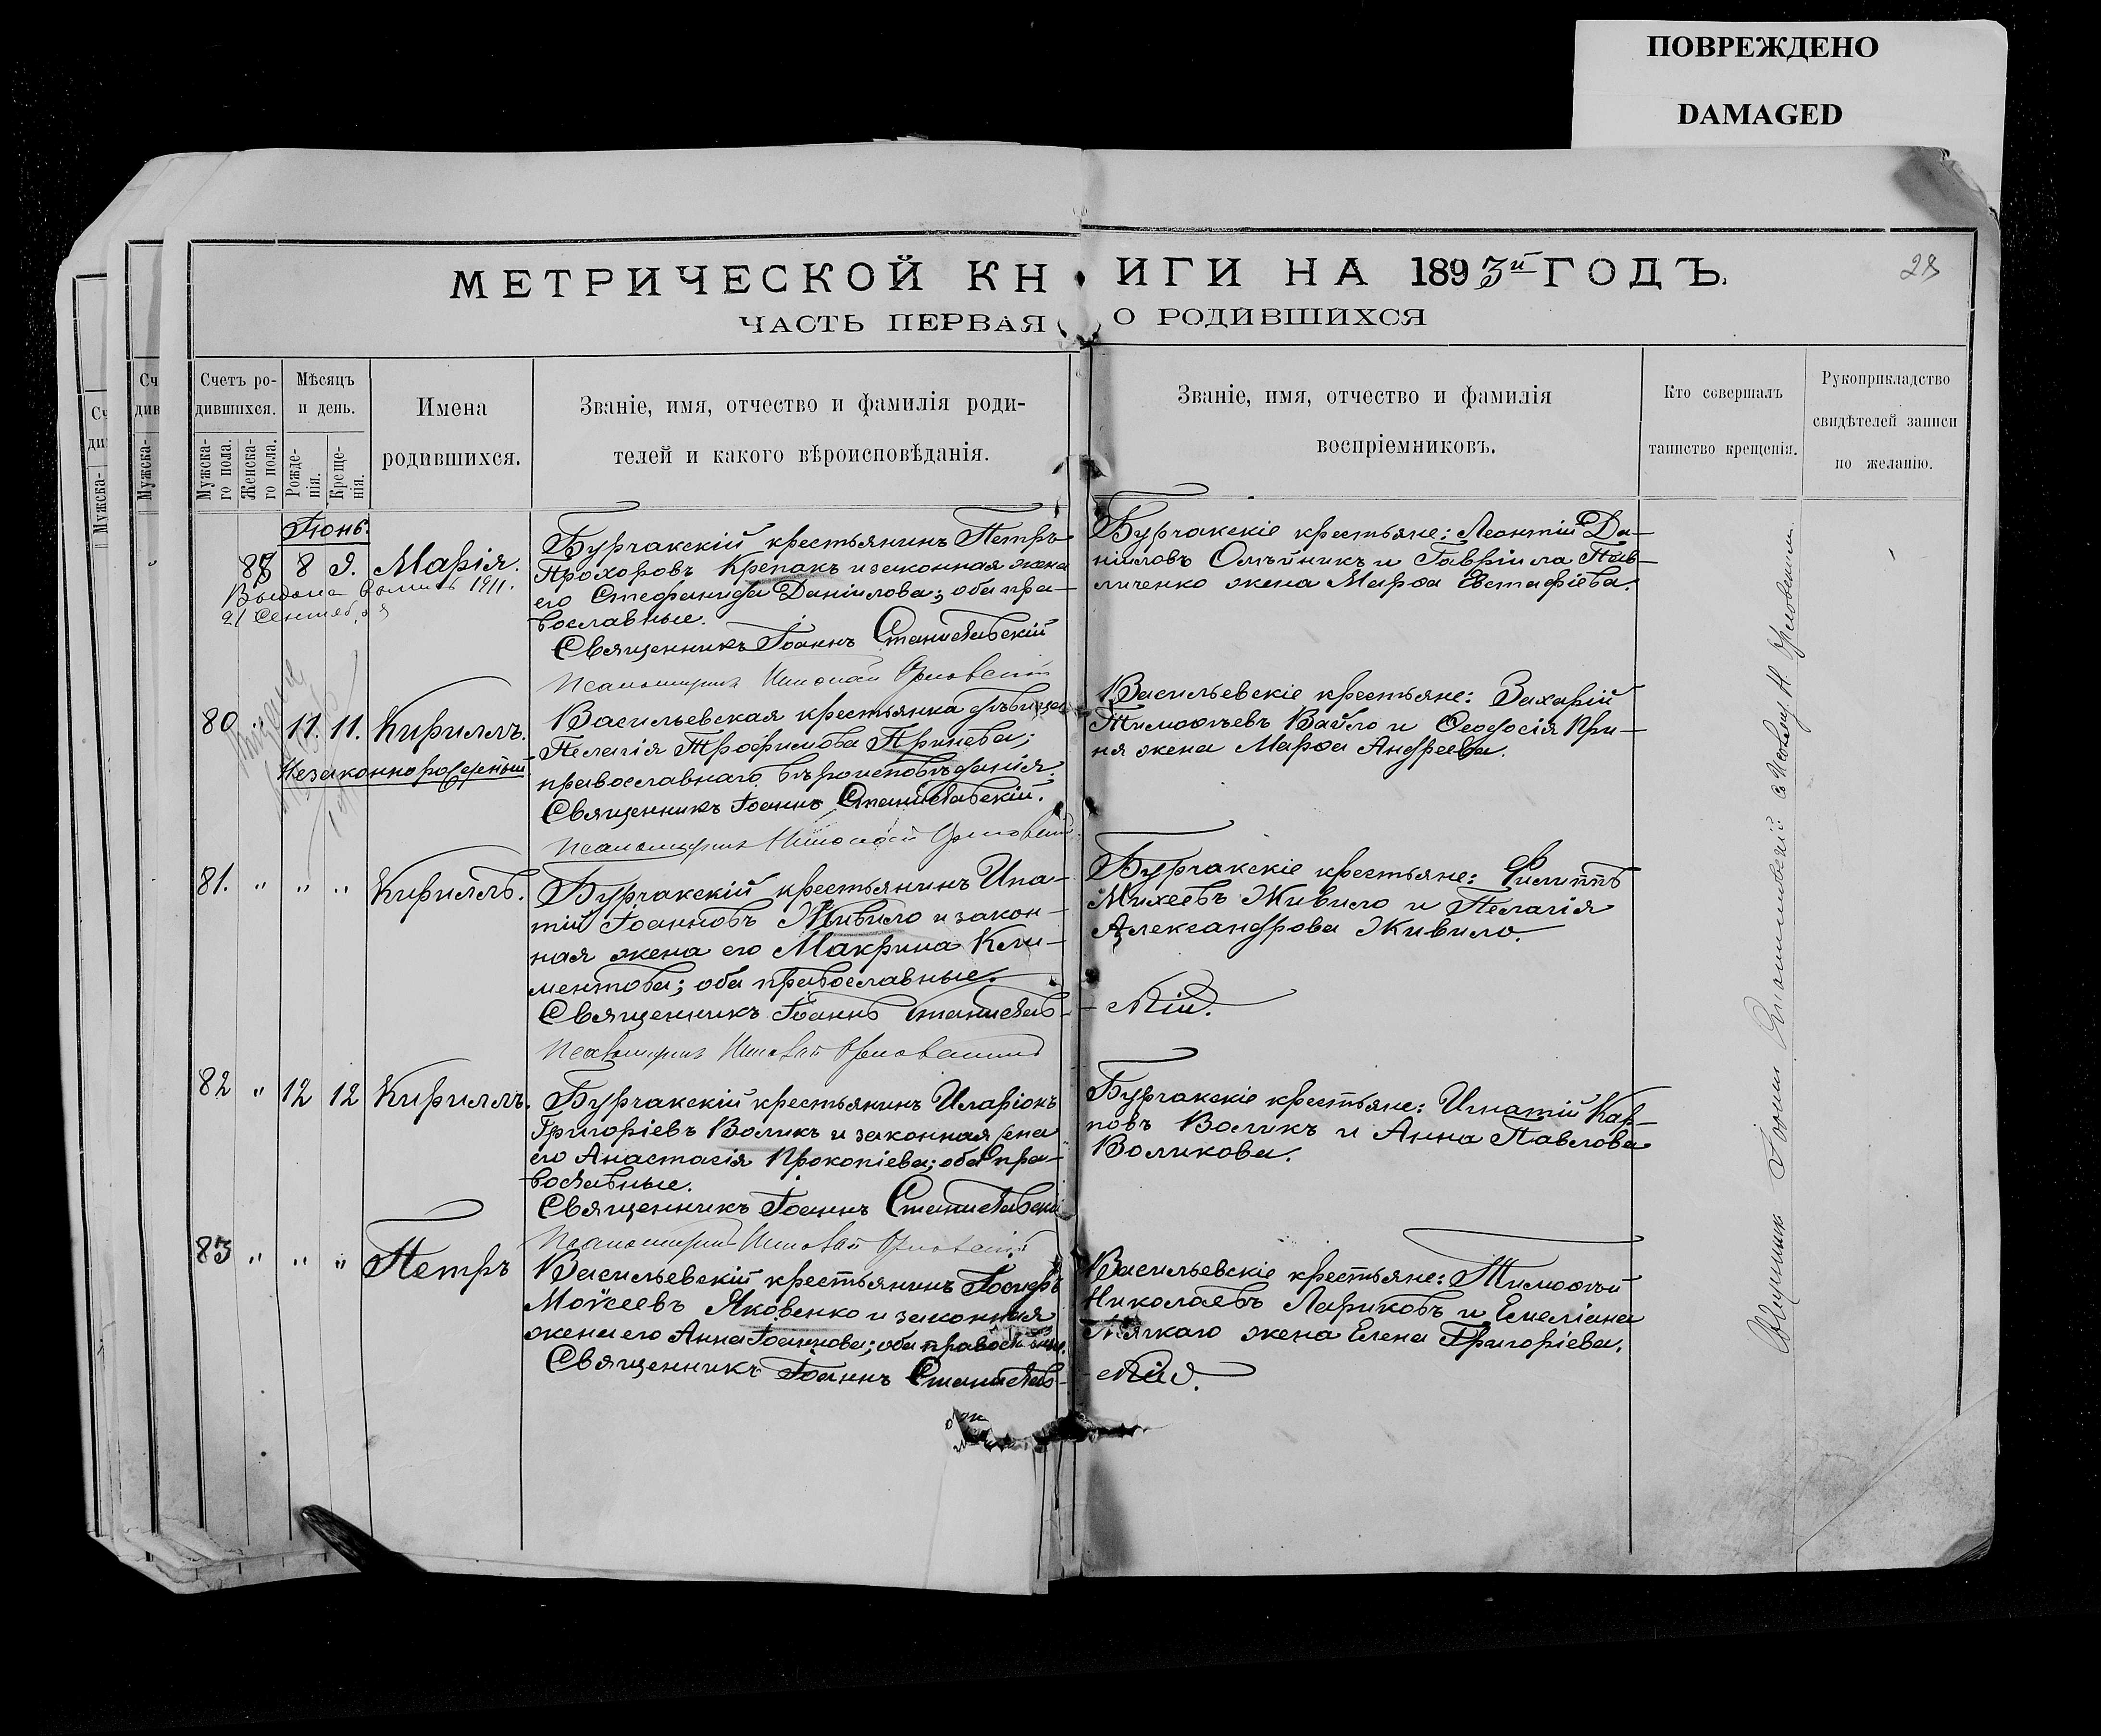 ПОВРЕЖДЕНО
DAMAGED
МЕТРИЧЕСКОЙ КНИГИ НА 1893й ГОДЪ.
28
ЧАСТЬ ПЕРВАЯ, О РОДИВШИХСЯ
Счетъ ро-
дившихся.
Мужска-
го пола.
Женска-
го пола.
Мѣсяцъ
и день.
Рожде-
нія.
Креще-
нія.
Имена
родившихся.
Званіе, имя, отчество и фамилія роди-
телей и какого вѣроисповѣданія.
Званіе, имя, отчество и фамилія
воспріемниковъ.
Кто совершалъ
таинство крещенія.
Рукоприкладство
свидѣтелей записи
по желанію.
Іюнь.
8 9. Марія.
Бурчакскій крестьянинъ Петръ
Прохоровъ Крепакъ и законная жена
его Стефанида Даніилова; оба пра-
вославные.
Священникъ Іоаннъ Станиславскій
Псаломщикъ Николай
Бурчакскіе крестьяне: Леонтій Да-
ніиловъ Олѣйникъ и Гавріила Пав-
личенко жена Марѳа Евстафіева.
Выдана 1911.
21 Сентяб.
80 " 11. 11. Кириллъ.
Незаконнорожденный
Васильевская крестьянка дѣвица
Пелагія Трофимова Принева;
православнаго вѣроисповѣданія.
Священникъ Іоаннъ Станиславскій.
Псаломщикъ Николай
Васильевскіе крестьяне: Захарій
Тимоѳеевъ Вайло и Ѳеодосія При-
ня жена Марѳа Андреева.
81. " " " Кириллъ.
Бурчакскій крестьянинъ Ипа-
тій Іоанновъ Живило и закон-
ная жена его Макрина Кли-
ментова; оба православные.
Священникъ Іоаннъ Станислав-
скій.
Псаломщикъ Николай
Бурчакскіе крестьяне: Филиппъ
Михеевъ Живило и Пелагія
Александрова Живило.
82 " 12 12 Кириллъ.
Бурчакскій крестьянинъ Иларіонъ
Григоріевъ Воликъ и законная жена
его Анастасія Прокопіева; оба пра-
вославные.
Священникъ Іоаннъ Станиславскій
Псаломщикъ Николай
Бурчакскіе крестьяне: Игнатій Кар-
повъ Воликъ и Анна Павлова
Воликова.
83 " " " Петръ
Васильевскій крестьянинъ Іосифъ
Моѵсеевъ Яковенко и законная
жена его Анна Іоаннова; оба православные.
Священникъ Іоаннъ Станислав-
скій.
Васильевскіе крестьяне: Тимоѳей
Николаевъ Лариковъ и Емеліана
Мягкаго жена Елена Григоріева.
Священникъ Іоаннъ Станиславскій